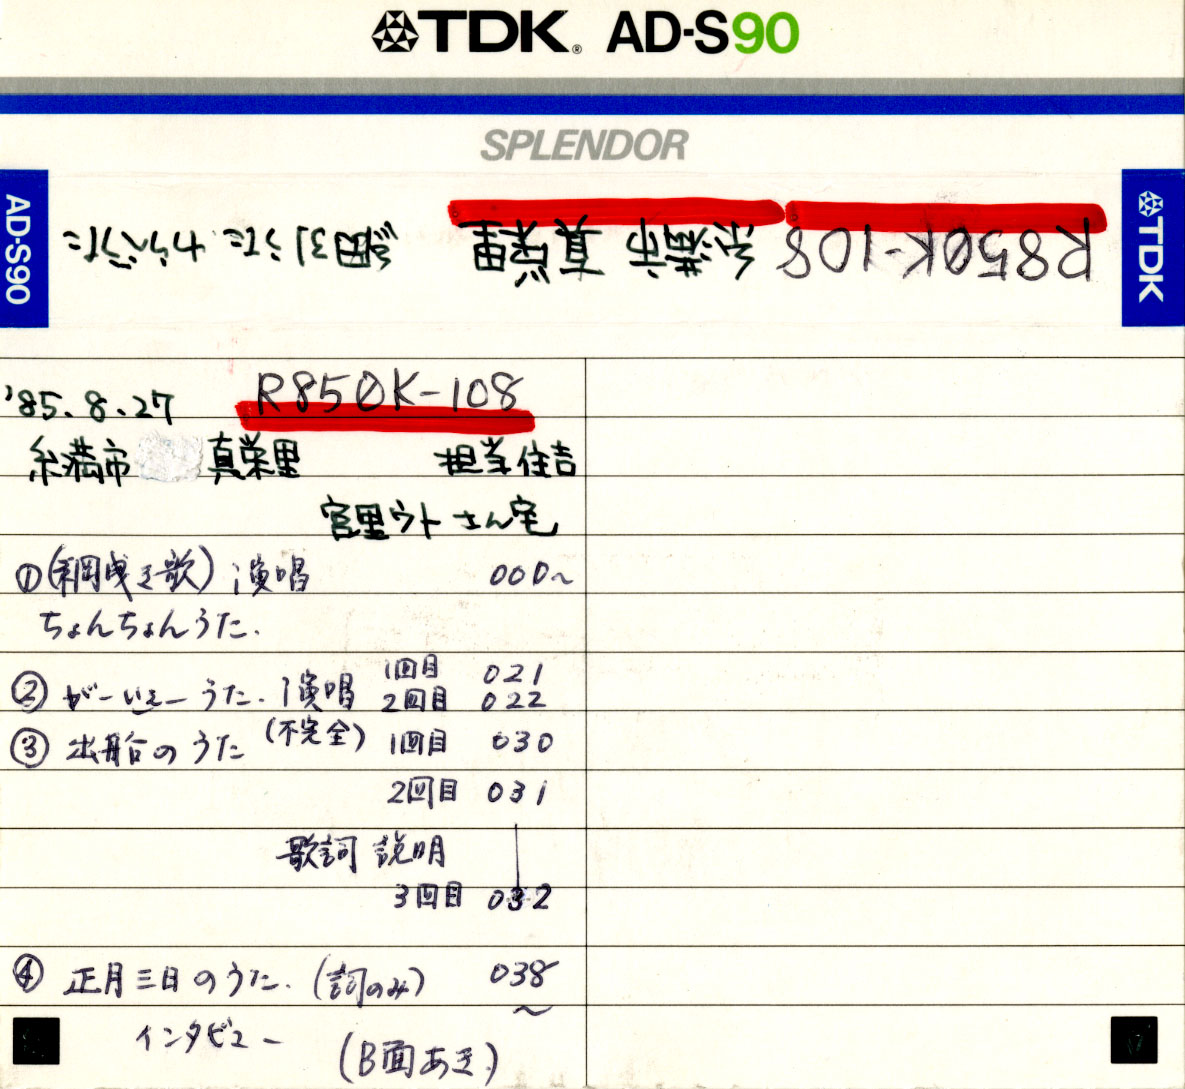 TDK® AD-S90
SPLENDOR
AD-S90
TDK
R850K-108 糸満市 真栄里
うた わらべうた
'85.8.27 R850K-108
糸満市 真栄里 担当 住吉
宮里ウトさん宅
①(綱曳き歌)演唱 000~
ちょんちょんうた.
② がーいえーうた.演唱 1回目 021
2回目 022
③ 出船のうた (不完全) 1回目 030
2回目 031
歌詞 説明
3回目 032
④ 正月三日のうた.(詞のみ) 038
~
インタビュー (B面あき)